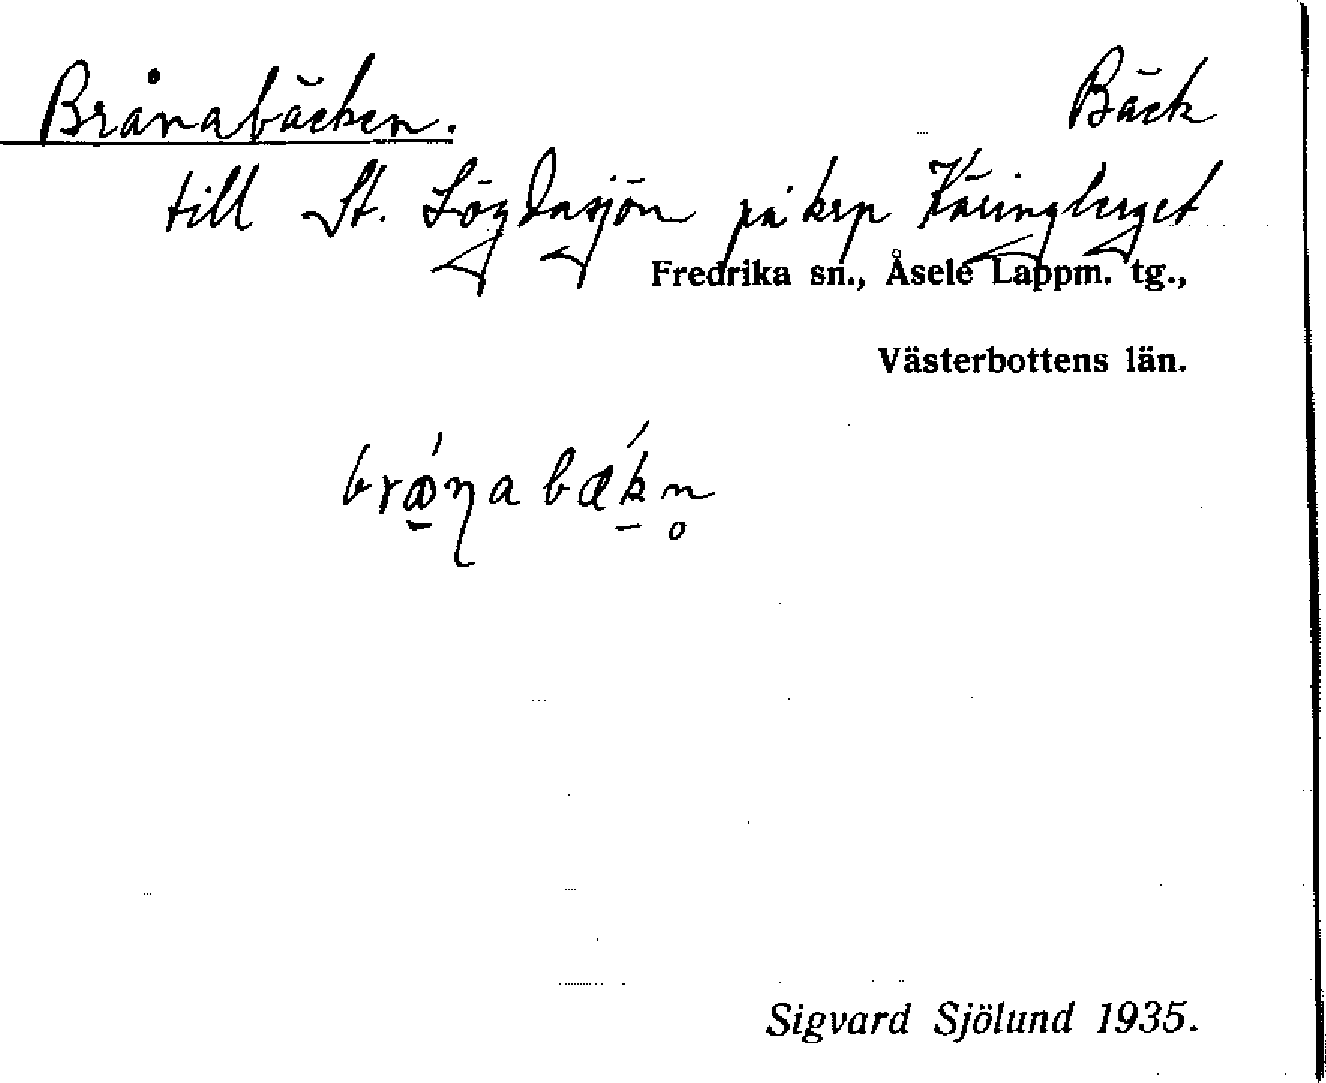 Brånabäcken. Bäck
till St. Lögdasjön på krp Käringberget
Fredrika sn., Åsele Lappm. tg.,
Västerbottens län.
Sigvard Sjölund 1935.